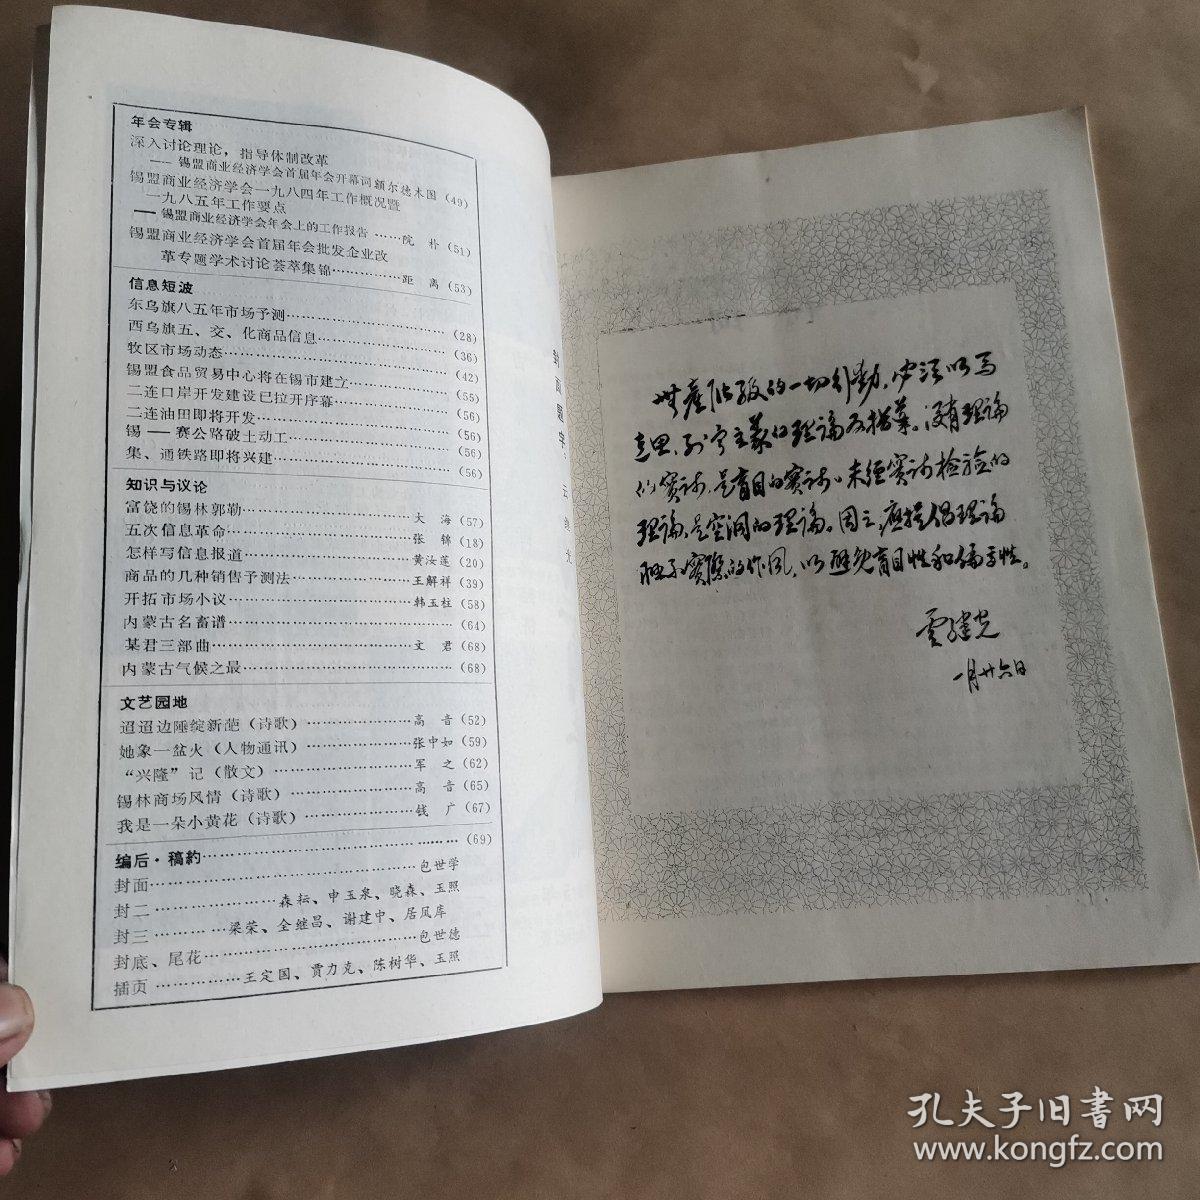 年会专辑
深入讨论理论，指导体制改革
——锡盟商业经济学会首届年会开幕词额尔德木图（49）
锡盟商业经济学会一九八四年工作概况暨
一九八五年工作要点
——锡盟商业经济学会年会上的工作报告……阮 朴（51）
锡盟商业经济学会首届年会批发企业改
革专题学术讨论荟萃集锦…………距 离（53）
信息短波
东乌旗八五年市场予测……………………（28）
西乌旗五、交、化商品信息………………（36）
牧区市场动态………………………………（42）
锡盟食品贸易中心将在锡市建立…………（55）
二连口岸开发建设已拉开序幕……………（56）
二连油田即将开发…………………………（56）
锡——赛公路破土动工……………………（56）
集、通铁路即将兴建………………………（56）
知识与议论
富饶的锡林郭勒……………………大 海（57）
五次信息革命………………………张 锦（18）
怎样写信息报道……………………黄汝莲（20）
商品的几种销售予测法……………王解祥（39）
开拓市场小议………………………韩玉柱（58）
内蒙古名畜谱………………………………（64）
某君三部曲…………………………文 君（68）
内蒙古气候之最……………………………（68）
文艺园地
迢迢边陲绽新葩（诗歌）…………高 音（52）
她象一盆火（人物通讯）…………张中如（59）
“兴隆”记（散文）………………军 之（62）
锡林商场风情（诗歌）……………高 音（65）
我是一朵小黄花（诗歌）…………钱 广（67）
编后·稿約…………………………………（69）
封面………………………………包世学
封二…………………森耘、申玉泉、晓森、玉照
封三…………梁荣、全继昌、谢建中、居凤库
封底、尾花………………………包世德
插页……………王定国、贾力克、陈树华、玉照
封面题字：云 光
无产阶级的一切行动，必须以马
克思、列宁主义的理论为指导。没有理论
的实践，是盲目的实践。未经实践检验的
理论，是空洞的理论。因之，应提倡理论
联系实际的作风，以避免盲目性和偏差性。
云建光
一月廿六日
孔夫子旧書网
www.kongfz.com